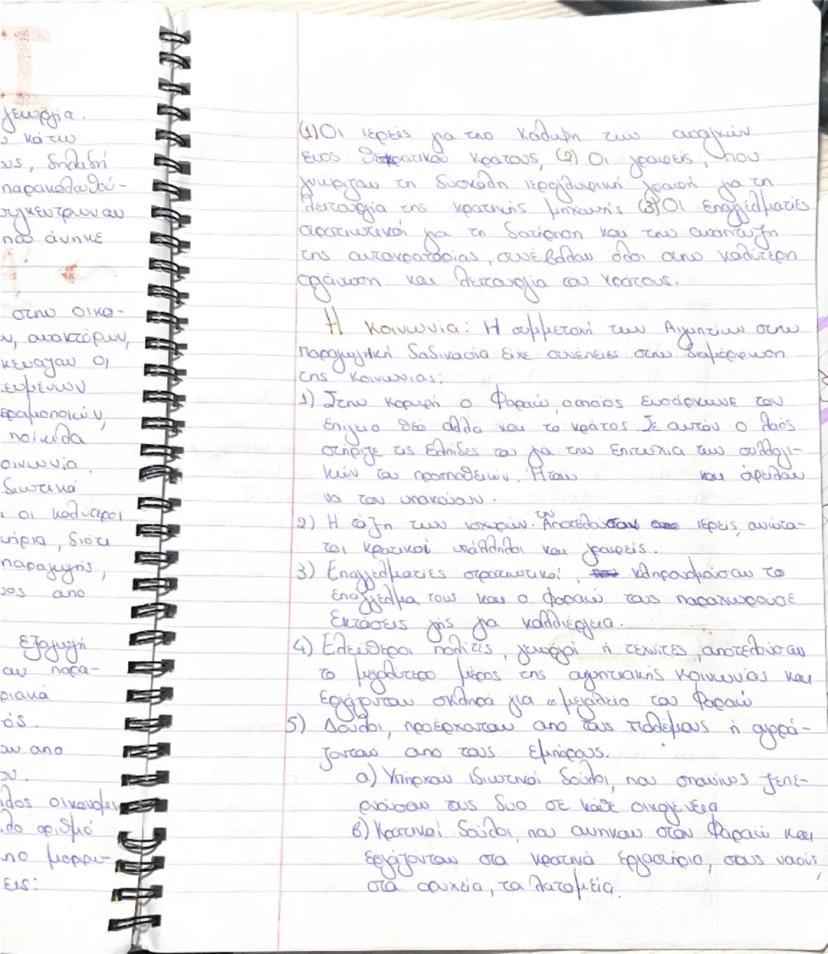 γεωργία.
κάτω
ους, δηλαδή
παρακολουθού-
συγκεντρωναν
που άνηκε
στην οικο-
ν, ανακτόρων,
κευαζαν οι
ευμένων
εραμοποιών,
ποικιλα
οινωνία.
διωτικά
οι καλύτεροι
τήρια, διότι
παραγωγής,
νος απο
εξαγωγή
αν παρα-
ριακά
ός.
ου απο
υ.
ιδος οικονομικ
λο αριθμό
υπο μορφω-
εις:
(1) Οι ιερείς για την κάλυψη των αναγκών
ενος θεοκρατικού κρατους, (2) Οι γραφείς, που
γνώριζαν τη δύσκολη ιερογλυφική γραφή για τη
λειτουργία της κρατικής μηχανής (3) Οι επαγγελματίες
στρατιωτικοί για τη διατήρηση και την αναπτυξη
της αυτοκρατορίας, συνέβαλαν όλοι στην καλύτερη
οργάνωση και λειτουργία του κράτους.
Η Κοινωνία: Η συμμετοχή των Αιγυπτίων στην
παραγωγική διαδικασία είχε συνέπειες στην διαμόρφωση
της κοινωνίας:
1) Στην κορυφή ο Φαραώ, οποίος ενσάρκωνε τον
επίγειο θεό αλλα και το κράτος. Σε αυτόν ο λαός
στήριζε τις ελπίδες του για την επιτυχία των συλλογι-
κών του προσπαθειών. Ήταν και όφειλαν
να τον υπακούουν.
2) Η τάξη των ισχυρών. Την Αποτελούσαν ιερείς, ανώτα-
τοι κρατικοί υπάλληλοι και γραφείς.
3) Επαγγελματίες στρατιωτικοί, κληρονομούσαν το
επάγγελμα τους και ο Φαραώ τους παραχωρουσε
εκτάσεις γης για καλλιέργεια.
4) Ελεύθεροι πολίτες, γεωργοί ή τεχνίτες, αποτελούσαν
το μεγαλύτερο μέρος της αιγυπτιακής κοινωνίας και
εργάζονταν σκληρά για το μεγαλείο του Φαραώ
5) Δούλοι, προέρχονταν απο τους πολέμους ή αγορά-
ζονταν απο τους εμπόρους.
α) Υπήρχαν ιδιωτικοί δούλοι, που σπανίως ξεπε-
ρνούσαν τους δυο σε κάθε οικογένεια
β) Κρατικοί δούλοι, που ανηκαν στον Φαραώ και
εργάζονταν στα κρατικά εργαστήρια, στους ναούς,
στα ορυχεία, τα λατομεία.